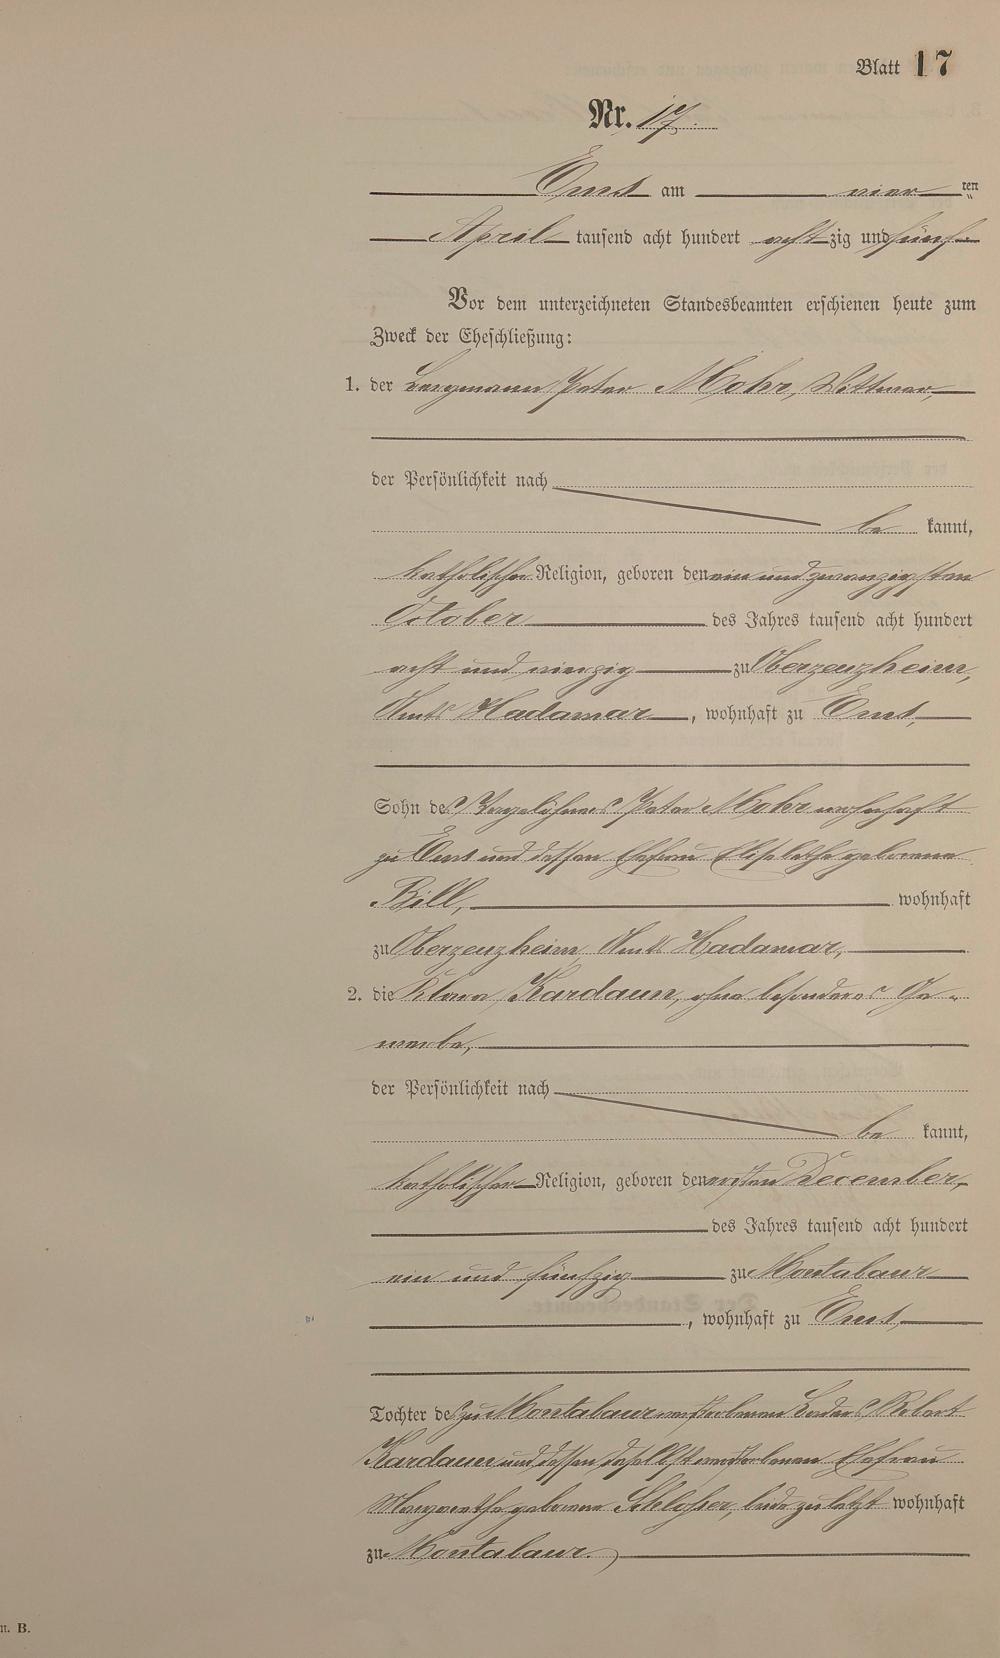 Blatt 17
Nr. 17.
Ems am vier ten
April tausend acht hundert acht zig und fünf
Vor dem unterzeichneten Standesbeamten erschienen heute zum
Zweck der Eheschließung:
1. der Bergmann Peter Mohr, Wittwer,
der Persönlichkeit nach
be kannt,
katholischer Religion, geboren den ein und zwanzigsten
October des Jahres tausend acht hundert
acht und vierzig zu Oberzeuzheim,
Amts Hadamar, wohnhaft zu Ems,
Sohn des Tagelöhners Peter Mohr wohnhaft
zu Ems und dessen Ehefrau Elisabethe geborene
Bill, wohnhaft
zu Oberzeuzheim, Amts Hadamar,
2. die Klara Kardaun, ohne besonderes Ge-
werbe,
der Persönlichkeit nach
be kannt,
katholischer Religion, geboren den ersten December,
des Jahres tausend acht hundert
ein und fünfzig zu Montabaur
, wohnhaft zu Ems,
Tochter des zu Montabaur verstorbenen Robert
Kardaun und dessen daselbst verstorbenen Ehefrau
Margarethe geborene Schlosser, beide zuletzt wohnhaft
zu Montabaur.
n. B.